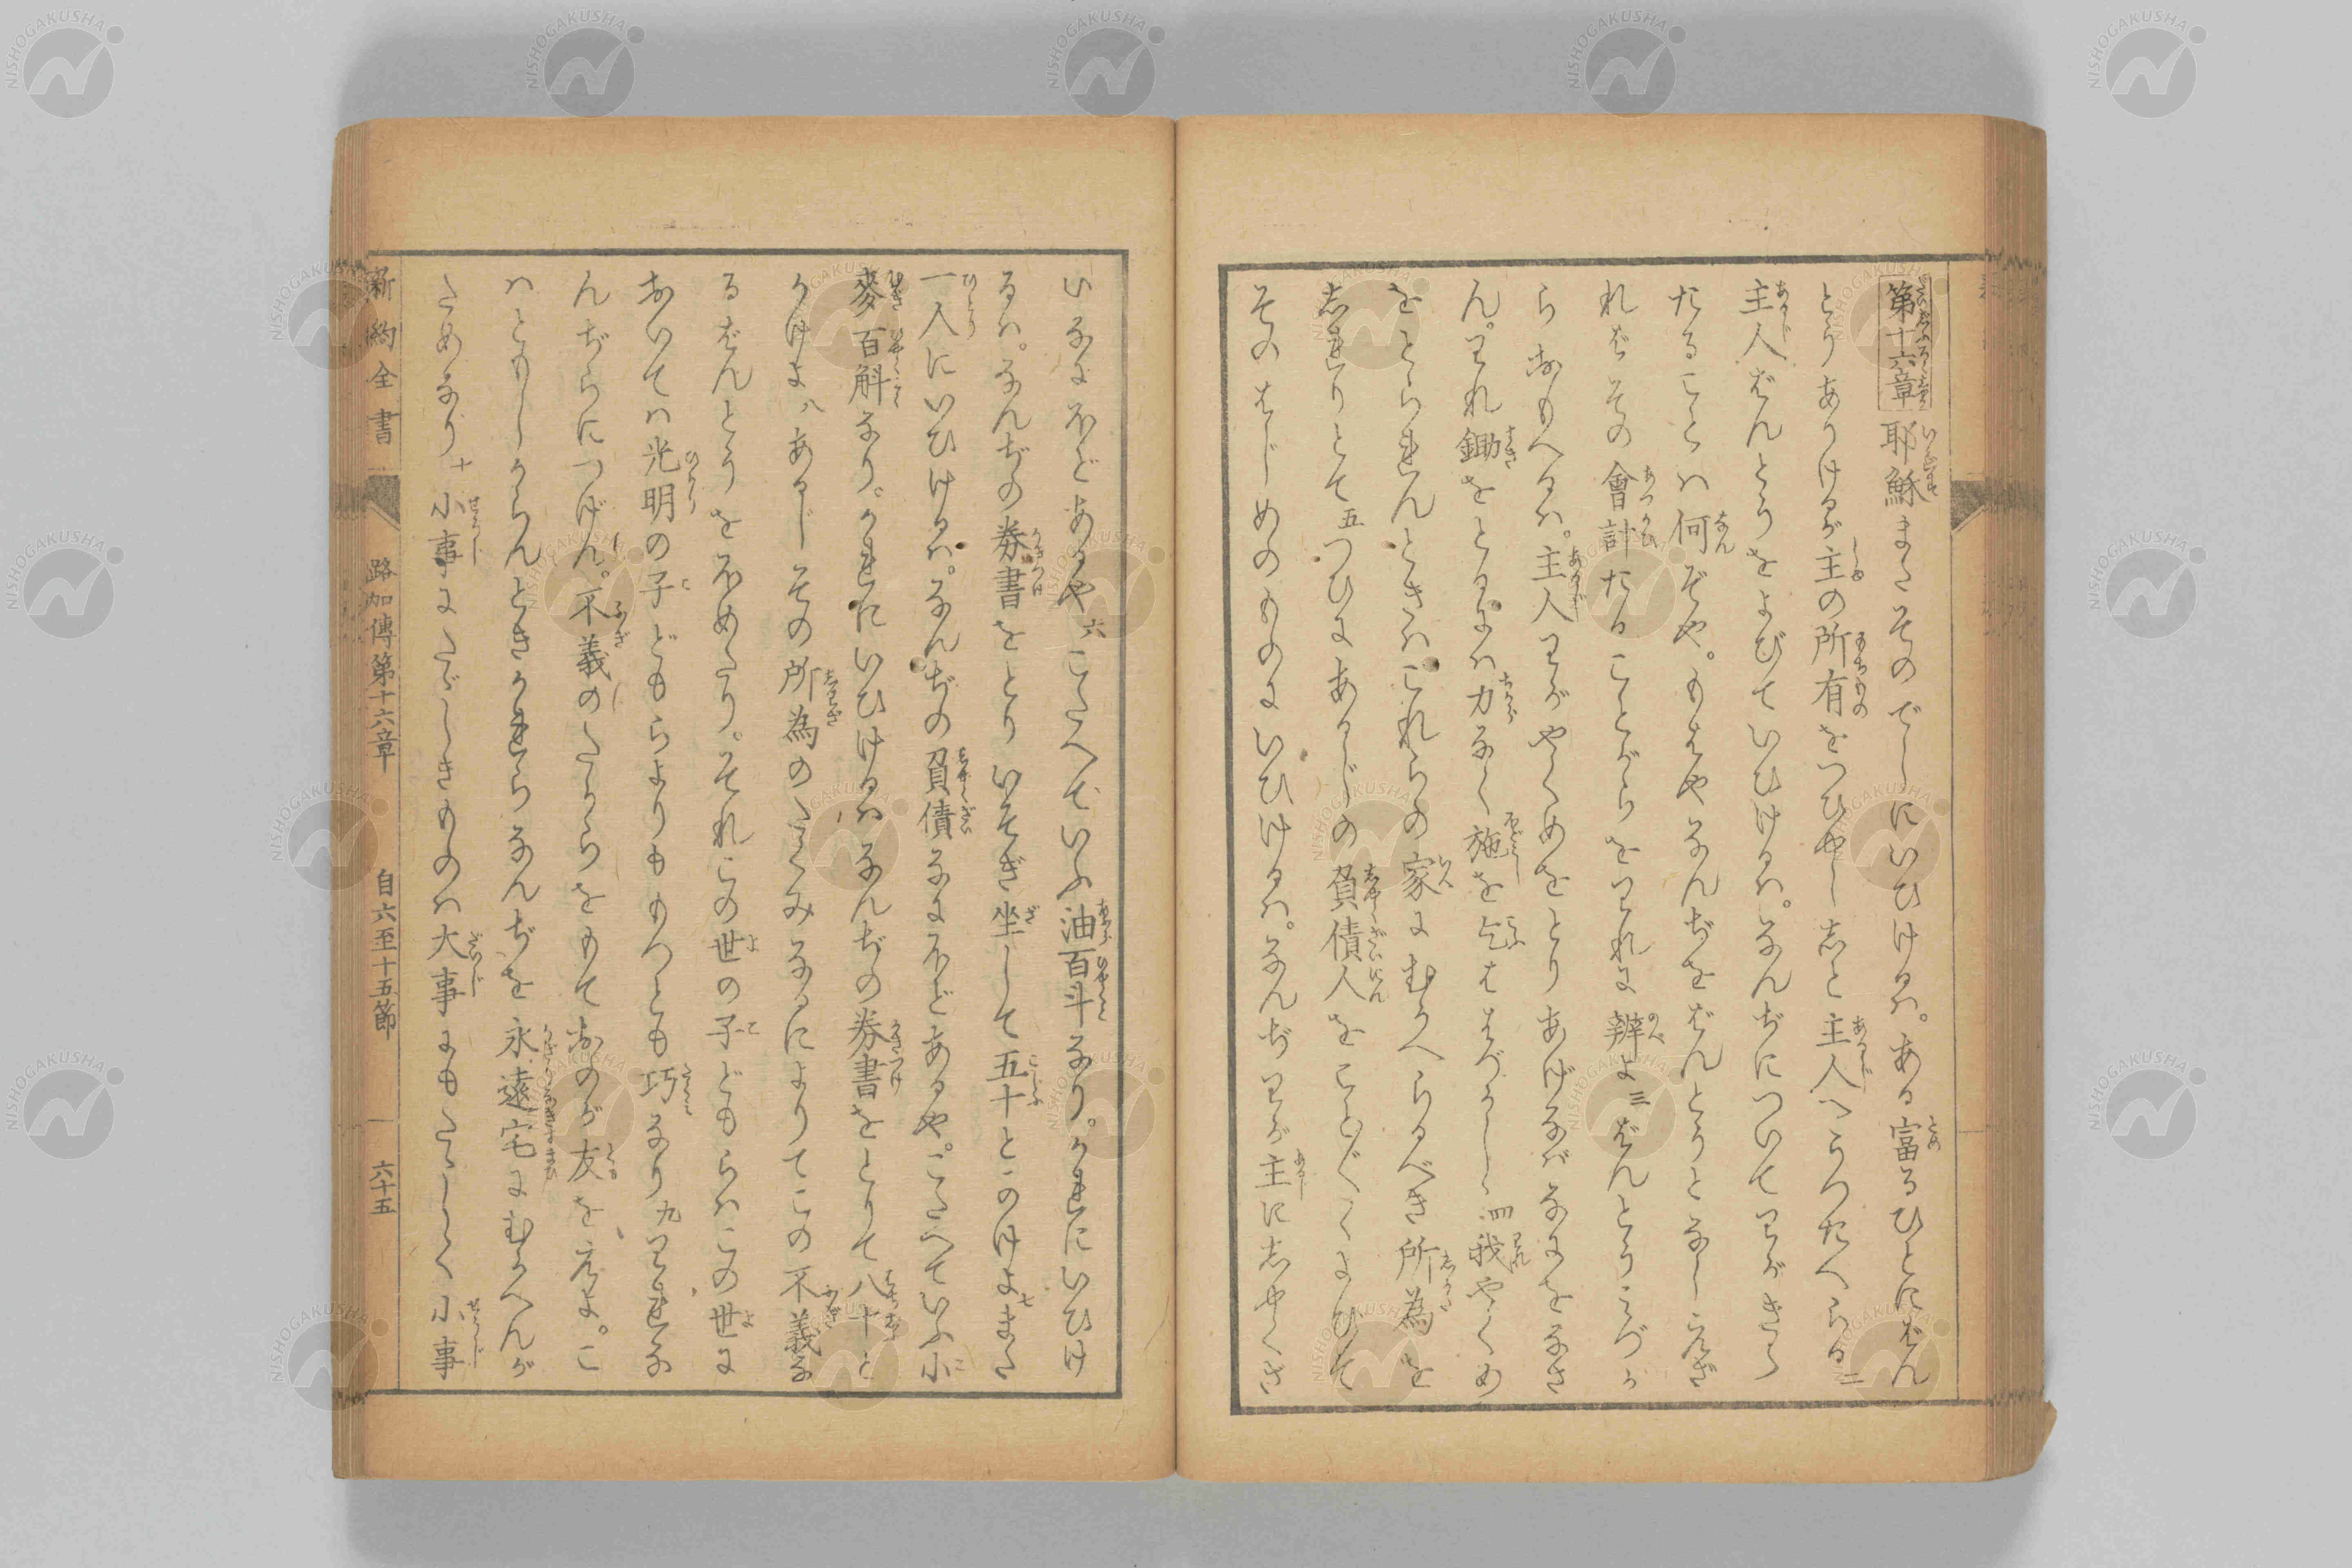 第十六章 耶穌またそのでしにいひけるハ。ある富るひとにばん
とうありけるが主の所有をつひやし志と主人へうつたへらる 二
主人ばんとうをよびていひけるハ。なんぢについてわがきく
たることハ何ぞや。もはやなんぢをばんとうとなしえざ
れバその會計たることがらをわれに辨よ 三 ばんとうこゝろか
らおもへるハ。主人わがやくめをとりあげなバなにをなさ
ん。われ鋤をとるにハ力なく施を乞ハはづかしゝ 四 我やくめ
をとられんときハこれらの家にむかへらるべき所為を
志れりとて 五 つひにあるじの負債人をことごとくよびて
そのはじめのものにいひけるハ。なんぢわが主に志やくさ
いなにほどあるや 六 こたへていふ油百斗なり。かれにいひけ
るハ。なんぢの券書をとりいそぎ坐して五十とかけよ 七 また
一人にいひけるハ。なんぢの負債なにほどあるや。こたへていふ小
麥百斛なり。かれにいひけるハなんぢの券書をとりて八十と
かけよ 八 あるじその所為のたくみなるによりてこの不義な
るばんとうをほめたり。それこの世の子どもらハこの世に
おいてハ光明の子どもらよりももつとも巧なり 九 われな
んぢらにつげん。不義のたからをもておのが友を得よ。こ
ハともしからんときかれらなんぢを永遠宅にむかへんが
ためなり 十 小事にたゞしきものハ大事にもたゞしく小事
新約全書 路加傳第十六章 自六至十五節 六十五
NISHOGAKUSHA